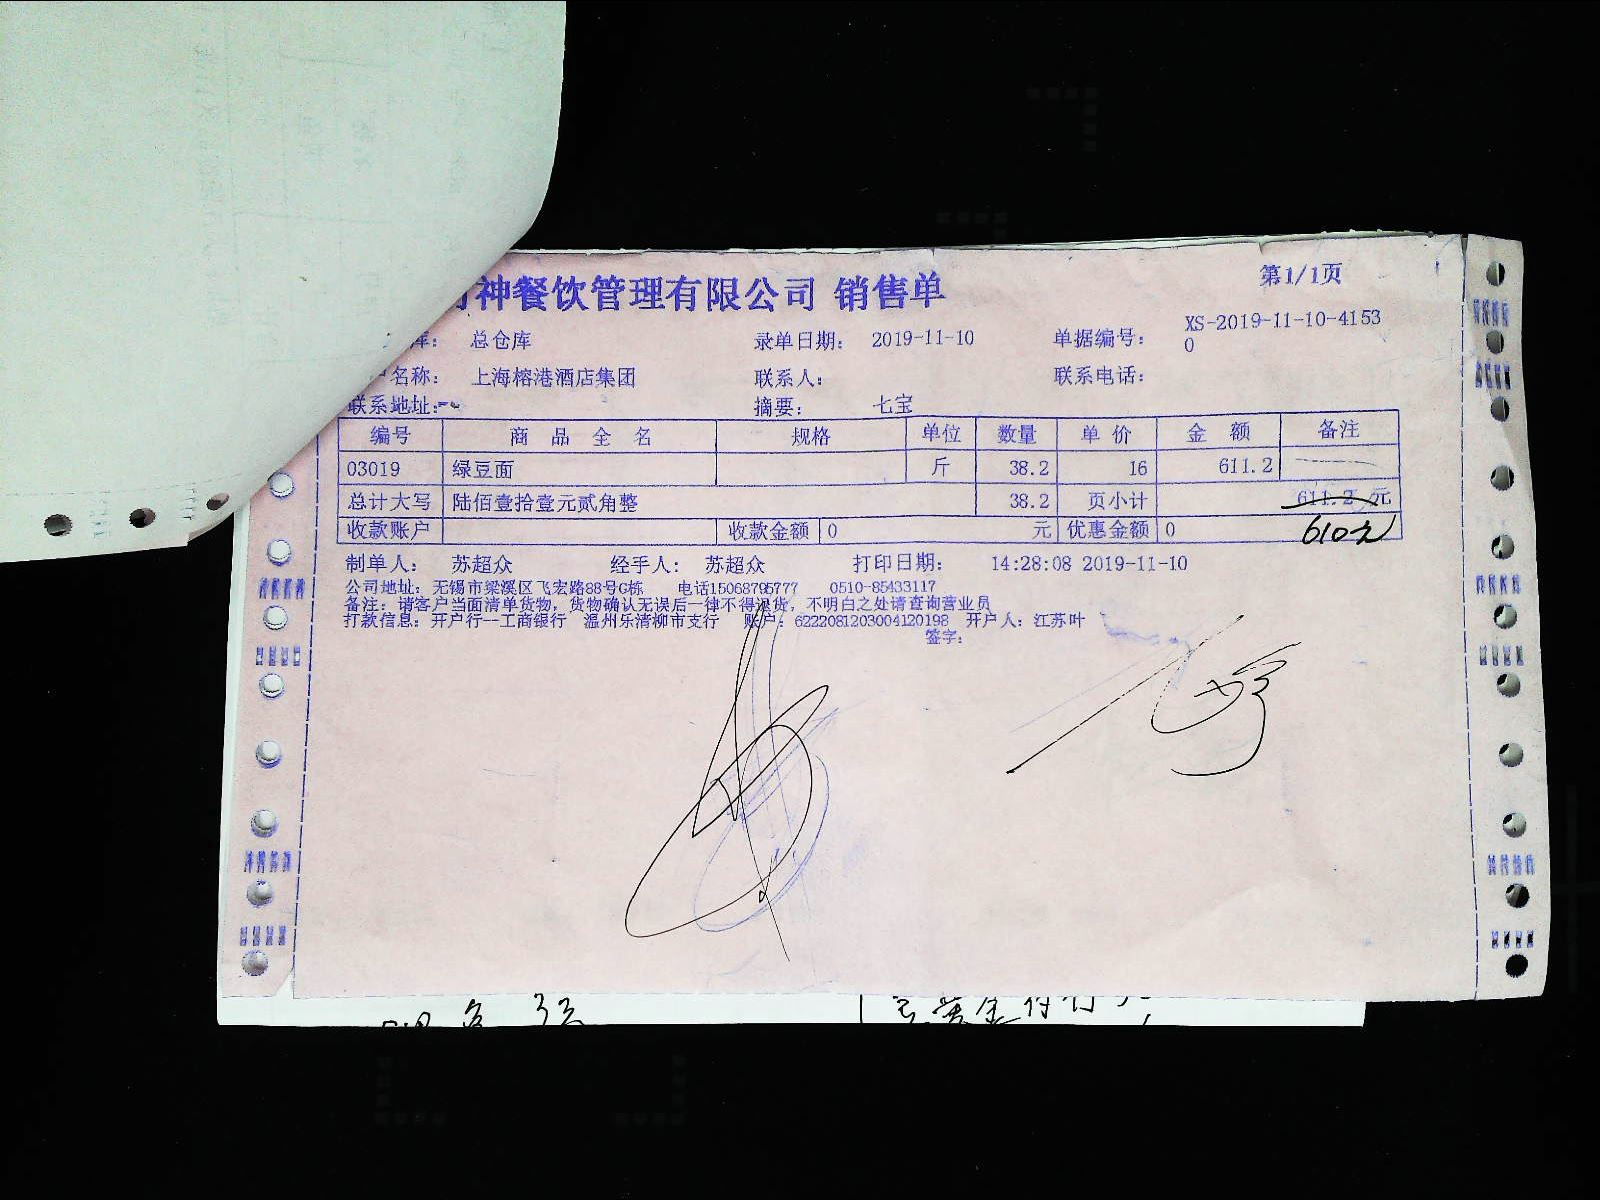 神餐饮管理有限公司 销售单
第1/1页
库: 总仓库 录单日期: 2019-11-10 单据编号: XS-2019-11-10-4153
0
名称: 上海榕港酒店集团 联系人: 联系电话:
联系地址: 摘要: 七宝
编号 商 品 全 名 规格 单位 数量 单 价 金 额 备注
03019 绿豆面 斤 38.2 16 611.2
总计大写 陆佰壹拾壹元贰角整 38.2 页小计 611.2 元
收款账户 收款金额 0 元 优惠金额 0 610元
制单人: 苏超众 经手人: 苏超众 打印日期: 14:28:08 2019-11-10
公司地址: 无锡市梁溪区飞宏路88号G栋 电话15068795777 0510-85433117
备注: 请客户当面清单货物, 货物确认无误后一律不得退货, 不明白之处请查询营业员
打款信息: 开户行--工商银行 温州乐清柳市支行 账户: 6222081203004120198 开户人: 江苏叶
签字: